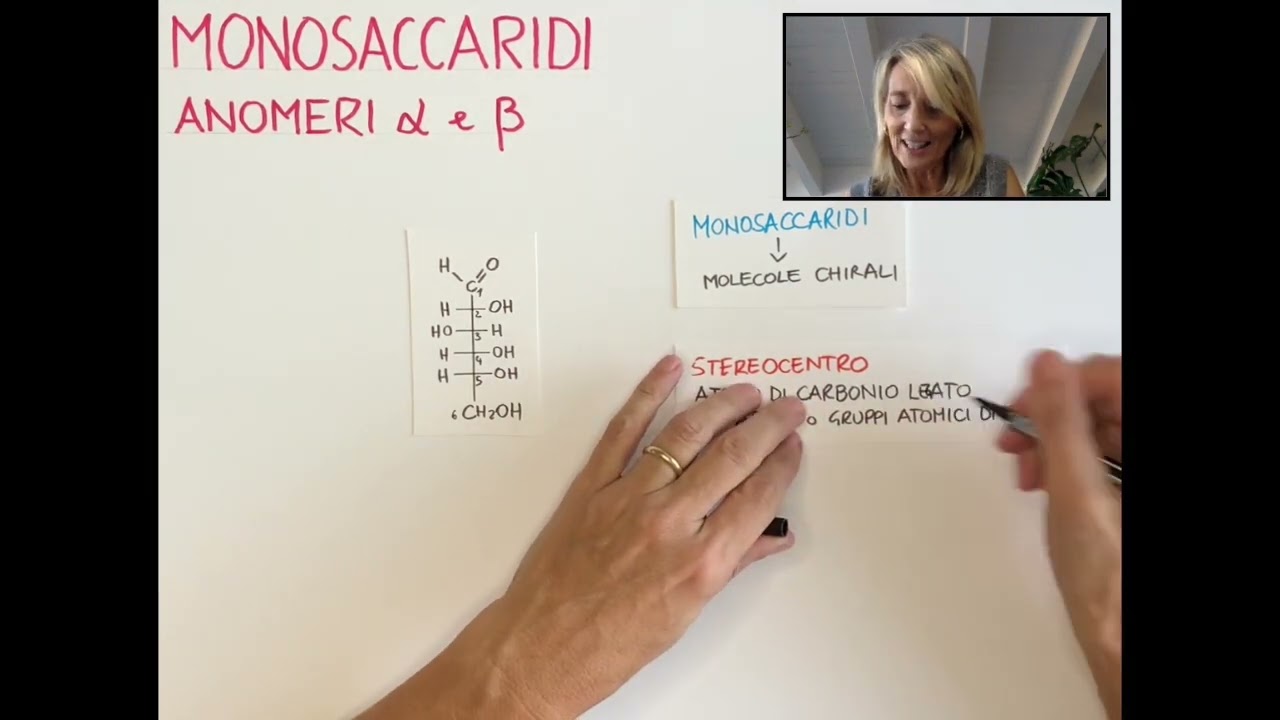 MONOSACCARIDI
ANOMERI α e β
MONOSACCARIDI
MOLECOLE CHIRALI
H O
C1
H 2 OH
HO 3 H
H 4 OH
H 5 OH
6 CH2OH
STEREOCENTRO
DI CARBONIO LEGATO
GRUPPI ATOMICI